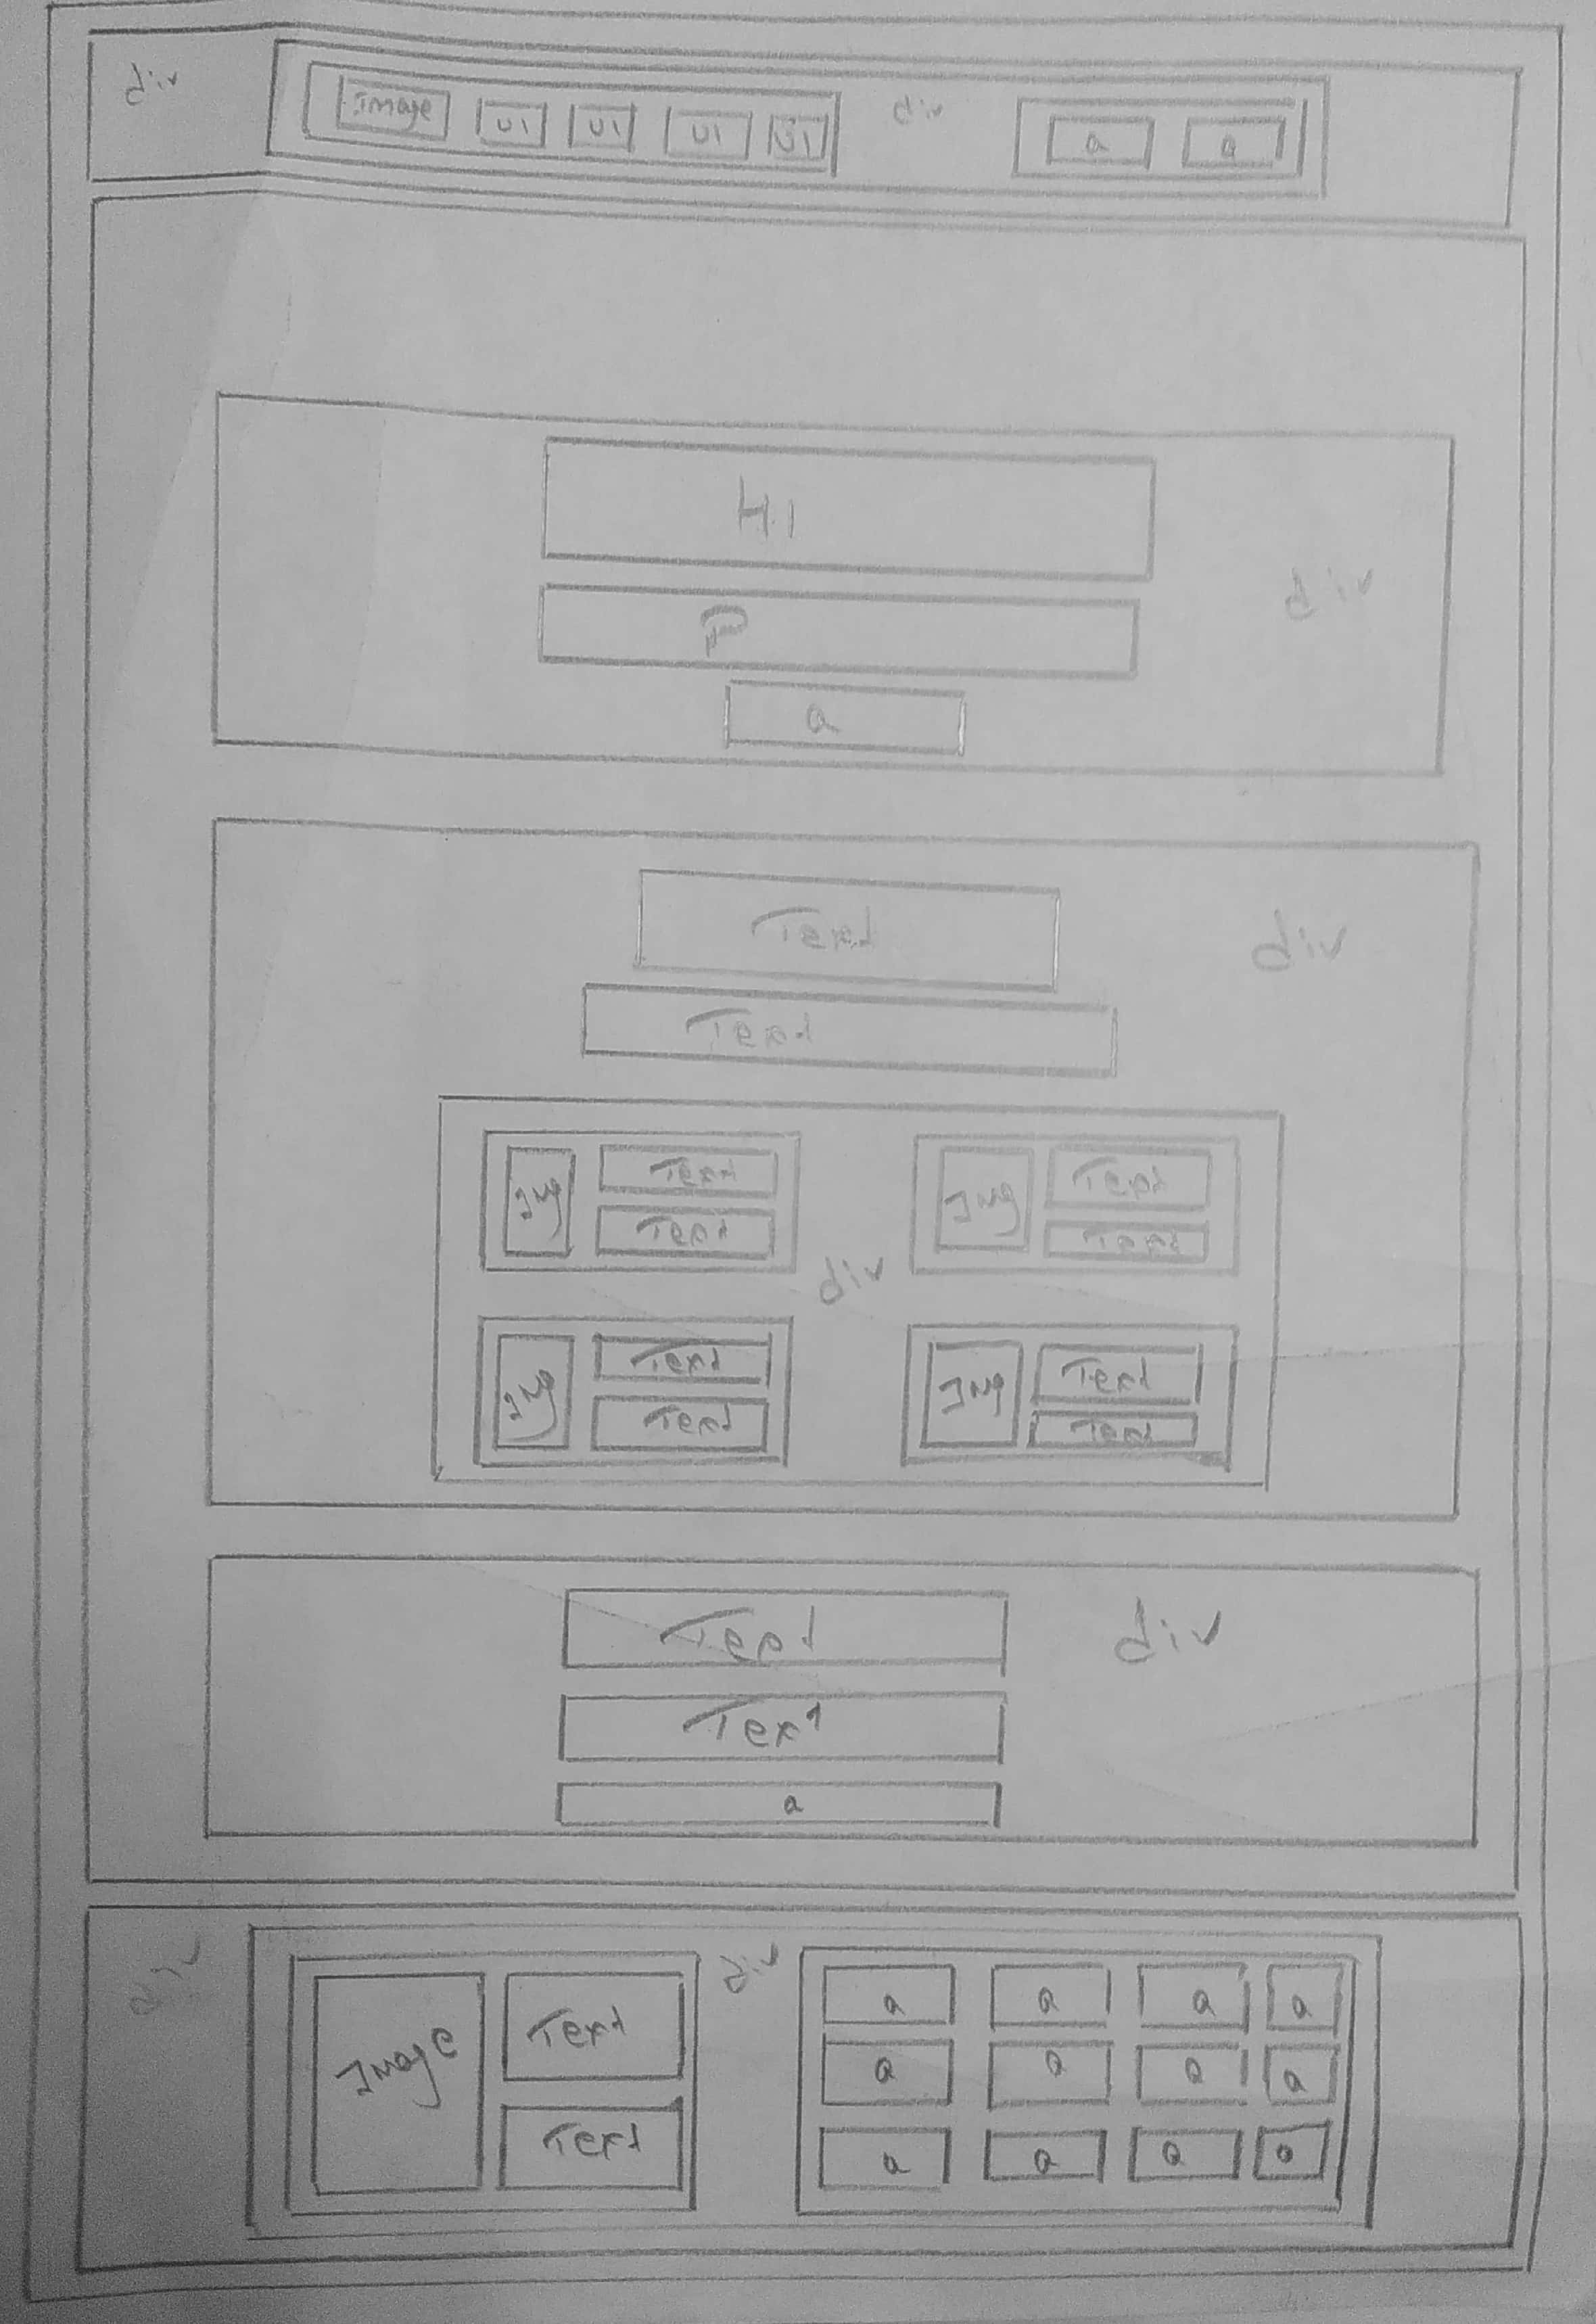 div Image U1 U1 U1 U1 div a a
H1
div
P
a
Text
div
Text
Img Text Img Text
Text Text
div
Img Text Img Text
Text Text
Text
div
Text
a
div Image Text div a a a a
a a a a
Text a a a a